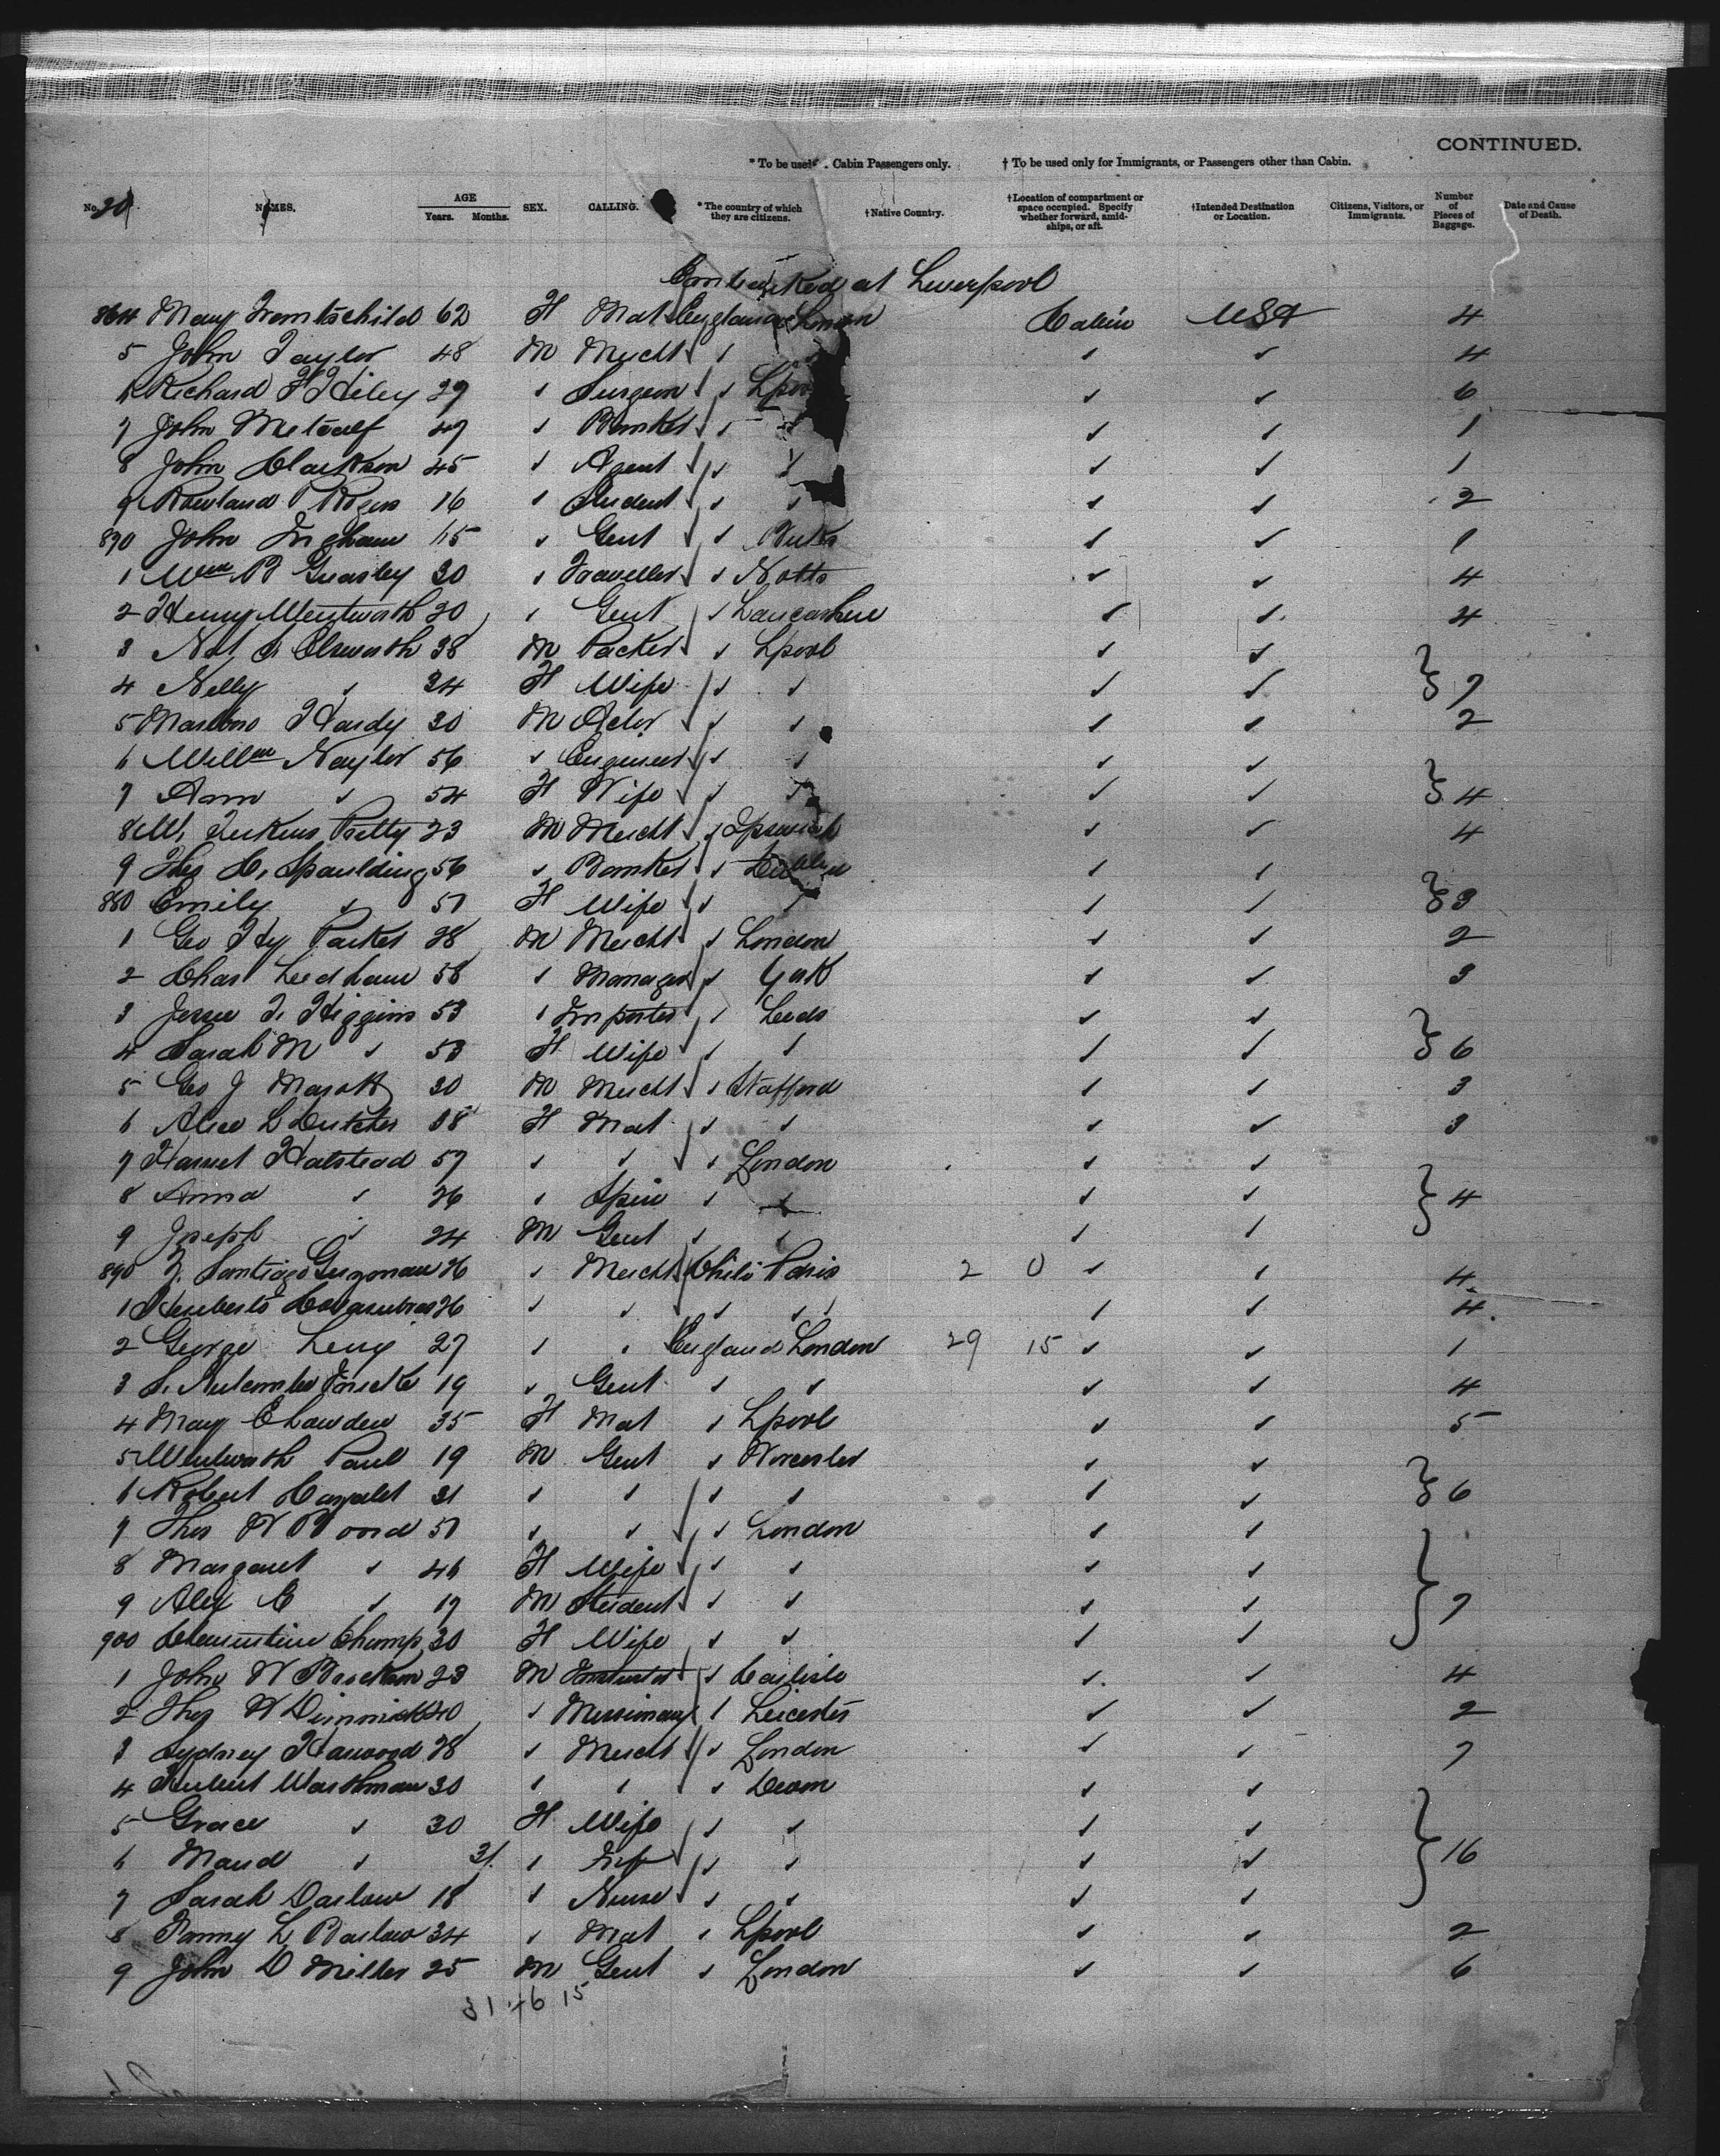 CONTINUED.
* To be used . Cabin Passengers only. † To be used only for Immigrants, or Passengers other than Cabin.
No. 20 NAMES. AGE Years. Months. SEX. CALLING. * The country of which they are citizens. † Native Country. † Location of compartment or space occupied. Specify whether forward, amidships, or aft. † Intended Destination or Location. Citizens, Visitors, or Immigrants. Number of Pieces of Baggage. Date and Cause of Death.
Embarked at Liverpool
864 Mary 62 F Mat England London Cabin USA 4
5 John Taylor 48 M Mercht ✓ ✓ ✓ 4
6 Richard H Hiley 29 ✓ Surgeon ✓ Lpool ✓ ✓ 6
7 John Metcalf 49 ✓ Banker ✓ ✓ ✓ ✓ 1
8 John Clarkson 45 ✓ Agent ✓ ✓ ✓ ✓ 1
9 Rowland P Rogers 16 ✓ Student ✓ ✓ ✓ ✓ 2
870 John Ingham ✓ Gent ✓ ✓ ✓ 1
1 Wm B Greasley 30 ✓ Traveller ✓ Notts ✓ ✓ 4
2 Henry Wentworth 20 ✓ Gent ✓ Lancashire ✓ ✓ 4
3 Elsworth 38 M Packer ✓ Lpool ✓ ✓
4 Nelly ✓ 34 F Wife ✓ ✓ ✓ ✓ } 7
5 Hardy 30 M Actor ✓ ✓ ✓ ✓ 2
6 Willm Naylor 56 ✓ Engineer ✓ ✓ ✓ ✓
7 Ann ✓ 54 F Wife ✓ ✓ ✓ ✓ } 4
8 W. Pretty 23 M Mercht ✓ Ipswich ✓ ✓ 4
9 Thos H. Spaulding 56 ✓ Banker ✓ Dublin ✓ ✓
880 Emily ✓ 51 F Wife ✓ ✓ ✓ } 3
1 Geo Hy Parker 28 M Mercht ✓ London ✓ ✓ 2
2 Chas Leedham 58 ✓ Manager ✓ York ✓ ✓ 3
3 Jesse T. Higgins 53 ✓ Importer ✓ Leeds ✓ ✓
4 Sarah M ✓ 53 F Wife ✓ ✓ ✓ ✓ } 6
5 Geo J Marott 30 M Mercht ✓ Stafford ✓ ✓ 3
6 Alice L Dutcher 38 F Mat ✓ ✓ ✓ ✓ 3
7 Harriet Halstead 57 ✓ ✓ ✓ London ✓ ✓
8 Anna ✓ 26 ✓ Spin ✓ ✓ ✓ ✓ } 4
9 Joseph ✓ 24 M Gent ✓ ✓ ✓ ✓
890 Santiago 26 ✓ Mercht Chili Paris 2 0 ✓ ✓ 4
1 26 ✓ ✓ ✓ ✓ ✓ ✓ 4
2 George Leng 27 ✓ ✓ England London 29 15 ✓ ✓ 1
3 S. 19 ✓ Gent ✓ ✓ ✓ ✓ 4
4 Mary Chawden 35 F Mat ✓ Lpool ✓ ✓ 5
5 Wentworth Paul 19 M Gent ✓ Worcester ✓ ✓
6 Robert 21 ✓ ✓ ✓ ✓ ✓ ✓ } 6
7 Thos W Wood 51 ✓ ✓ ✓ London ✓ ✓
8 Margaret ✓ 46 F Wife ✓ ✓ ✓ ✓
9 Alex C ✓ 19 M Student ✓ ✓ ✓ ✓ } 7
900 Clementine Chump 30 F Wife ✓ ✓ ✓ ✓
1 John W 23 M ✓ Carlisle ✓ ✓ 4
2 Thos W Dimmick 40 ✓ Missionary ✓ Leicester ✓ ✓ 2
3 Sydney Harwood 28 ✓ Mercht ✓ London ✓ ✓ 7
4 Hubert Warthman 30 ✓ ✓ ✓ Devon ✓ ✓
5 Grace ✓ 30 F Wife ✓ ✓ ✓ ✓
6 Maud ✓ ✓ Inf ✓ ✓ ✓ ✓ } 16
7 Sarah Darlow 18 ✓ Nurse ✓ ✓ ✓ ✓
8 Fanny L Barlow 34 ✓ Mat ✓ Lpool ✓ ✓ 2
9 John D Miller 25 M Gent ✓ London ✓ ✓ 6
31 46 15